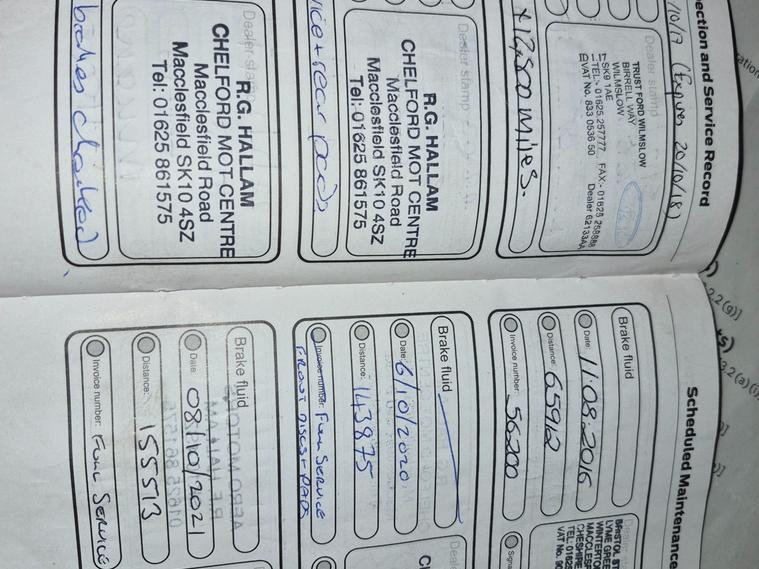 ection and Service Record
10/17 (Expires 20/10/18)
Dealer stamp
TRUST FORD WILMSLOW
BIRRELL WAY
WILMSLOW
SK9 1AE
TEL:- 01625 257777 FAX:- 01625 258888
VAT No. 833 0536 50 Dealer 62133AA
+ 12,500 miles.
Dealer stamp
R.G. HALLAM
CHELFORD MOT CENTRE
Macclesfield Road
Macclesfield SK10 4SZ
Tel: 01625 861575
vice + rear pads
Dealer stamp
R.G. HALLAM
CHELFORD MOT CENTRE
Macclesfield Road
Macclesfield SK10 4SZ
Tel: 01625 861575
brakes checked
Scheduled Maintenance
Brake fluid
Date: 11.08.2016
Distance: 65912
Invoice number: 56200
BRISTOL ST
LYME GREE
WINTERTO
MACCLESF
CHESHIRE
TEL: 01625
VAT No. 90
Signa
Brake fluid
Date: 6/10/2020
Distance: 143875
Invoice number: Full Service
FRONT DISCS + PADS
Deale
CH
Brake fluid
Date: 08/10/2021
Distance: 155513
Invoice number: Full Service
2.2 (g)]
3.2 (a) (i)